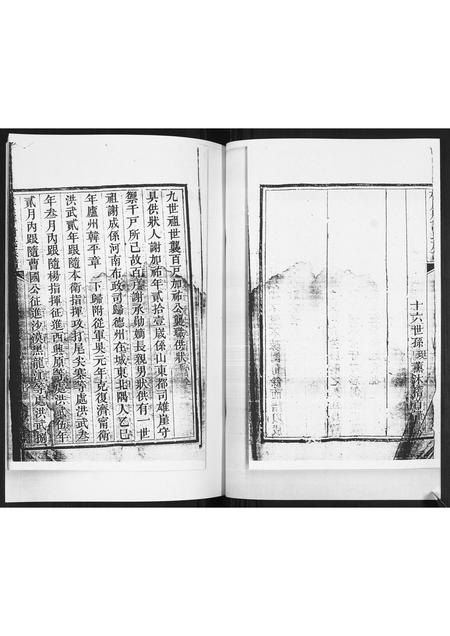 十六世孫
九世祖世襲百戸加祘公襲職供狀
具供狀人謝加祘年貳拾壹歲係山東都司雄崖守
禦千戸所已故百戸謝承勛嫡長親男狀供有一世
祖謝成係河南布政司歸德州在城東北隅人乙巳
年廬州韓平章下歸附從軍吳元年克復濟甯衛
洪武貳年跟隨本衛指揮政打尾尖寨等處洪武叁
年叁月內跟隨楊指揮征進西興原等處洪武伍年
貳月內跟隨曹國公征進沙漠黑龍江等處洪武